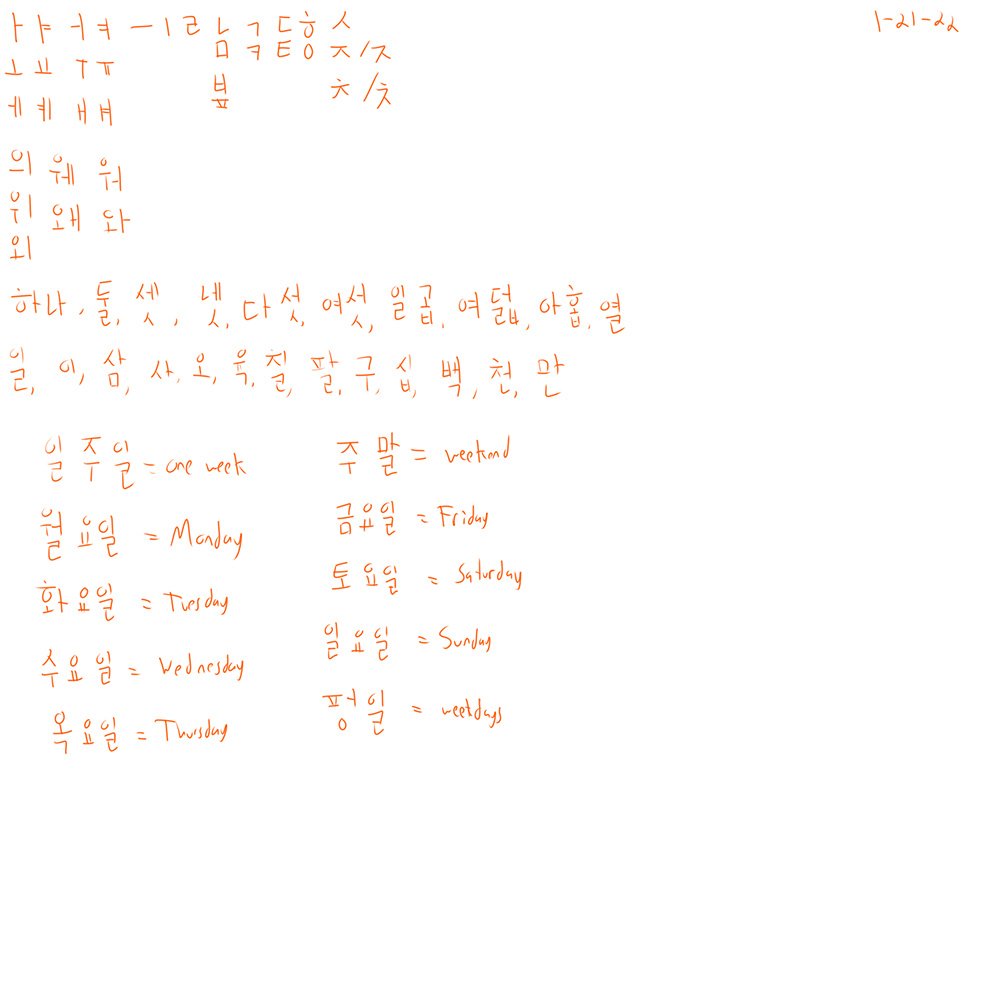 ㅏ ㅑ ㅓ ㅕ ㅡ ㅣ ㄹ ㄴ ㄱ ㄷ ㅎ ㅅ
1-21-22
ㅁ ㅋ ㅌ ㅇ ㅈ/ㅈ
ㅗ ㅛ ㅜ ㅠ
ㅂ ㅊ/ㅊ
ㅍ
ㅔ ㅖ ㅐ ㅒ
의 웨 워
위 왜 와
외
하나, 둘, 셋, 넷, 다섯, 여섯, 일곱, 여덟, 아홉, 열
일, 이, 삼, 사, 오, 육, 칠, 팔, 구, 십, 백, 천, 만
일주일 = one week
주말 = weekend
월요일 = Monday
금요일 = Friday
화요일 = Tuesday
토요일 = Saturday
수요일 = Wednesday
일요일 = Sunday
옥요일 = Thursday
펑일 = weekdays